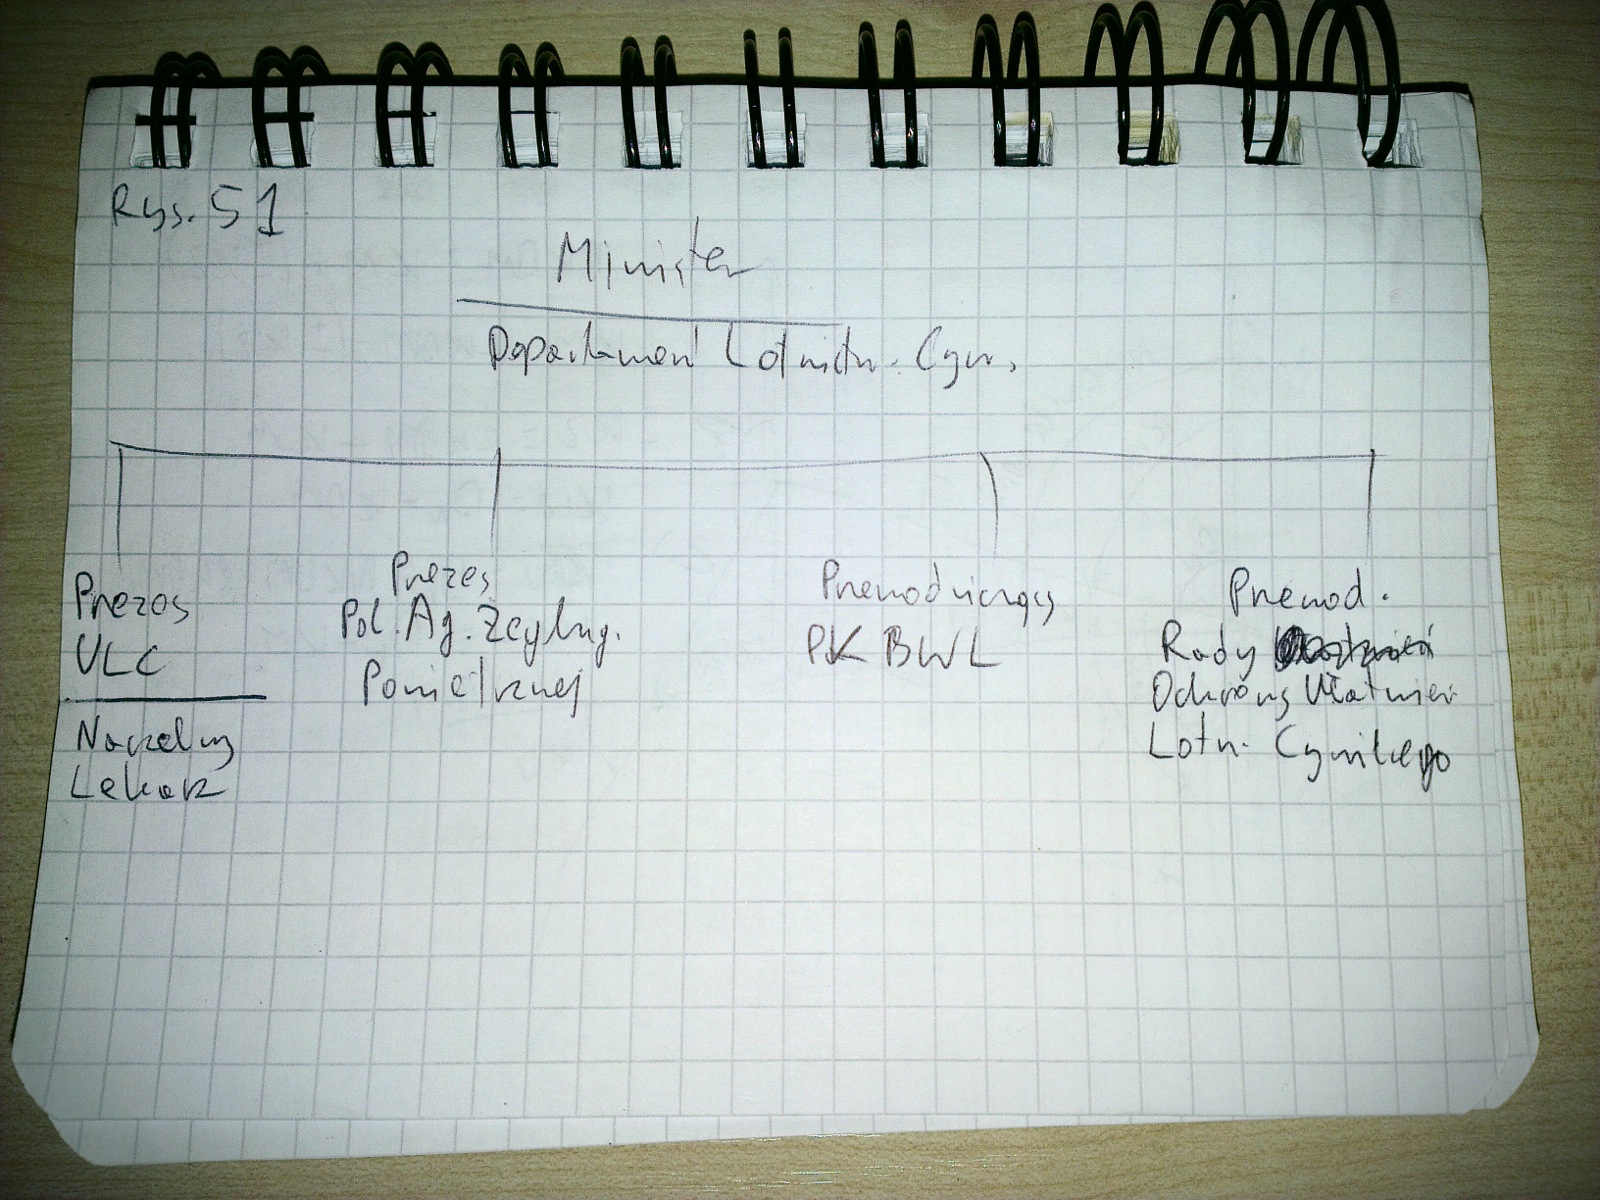 Rys. 51
Minister
Departament Lotnictw. Cyw.
Prezes
ULC
Naczelny
Lekarz
Prezes
Pol. Ag. Żeglug.
Powietrznej
Przewodniczący
PKBWL
Przewod.
Rady
Ochrony Ułatwień
Lotn. Cywilnego